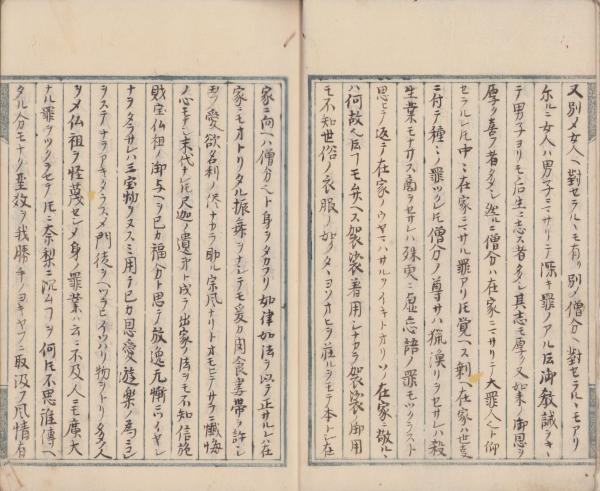 又別メ女人ヘ對セラルヽモ有リ別メ僧分ヘ對セラルヽモアリ
尓ルニ女人ハ男子ニマサリテ深キ罪ノアル故御教誡ヲキヽ
テ男子ヨリモ后生ニ志ス者多シ其志モ厚ク又如来ノ御恩ヲ
厚ク喜フ者多シ然ルニ僧分ハ在家ニマサリテ大罪人ト仰
セラルレ𪜈中々在家ニマサル罪アリ𪜈覚ヘス剰ヘ在家ハ世変
ニ付テ種々ノ罪ツクレ𪜈僧分ノ尊サハ猟漁リヲセサレハ殺
生業モナサス商ヲセサレハ殊更ニ虚忘語ノ罪モツクラスト
思ヒテ返テ在家ノウヤマハサルヲイキトオリソノ在家ニ敬ルヽ
ハ何故
モ不知世俗ノ衣服ノ如ク
家ニ向ヘハ僧分ヘト身ヲタカフリ如律如法ヲ以テ正サルレハ在
家ニモオトリタル振舞ヲナシテモ爰カ肉食妻帯ヲ許シ
玉ヲ愛欲名利ノ侭ナカラ助ル宗風ナリトオモヒテサラニ懺悔
ノ心モナシ末代ナレ𪜈尺迦ノ遺弟ト成テ出家ノ法ヲモ不知信施
財宝仏祖ノ御与ヘヲ己カ福分ト思テ放逸无慚ニイヤシ
ナヲタラサレハ三宝物ヲヌスミ用テ己カ恩愛遊樂ノ為ニシ
ヲステナヲアキタラスメ門徒ヲヘツラヒイツハリ物ヲトリ多人
ヲメ仏祖ヲ怪蔑セシメ身ノ罪業ハ云ニ不及人ニモ廣大
ナル罪ヲツクラセテ𪜈ニ奈梨ニ沉ムヿヲ何𪜈不思淮傳ヘ
タル分モナク聖教ヲ我勝手ノヨキヤフニ取汲フ風情有